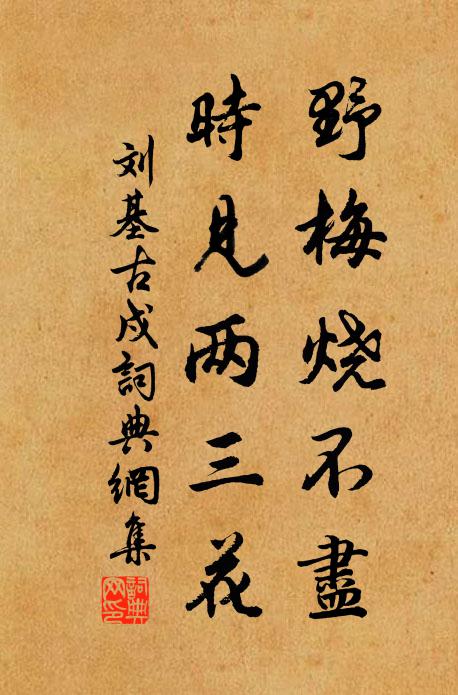 野梅烧不盡
時見两三花
刘基古戍詞典網集
詞典网印